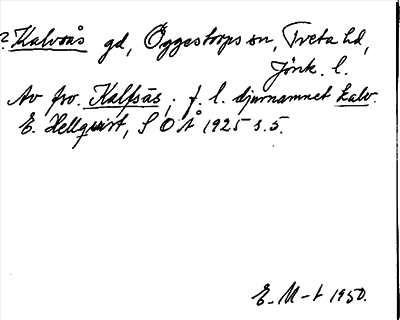 ? Kalvsås gd, Öggestorps sn, Tveta hd,
Jönk. l.
Av fsv. Kalfsás; f. l. djurnamnet kalv.
E. Hellquist, S O Å 1925 s. 5.
E. M-t 1950.